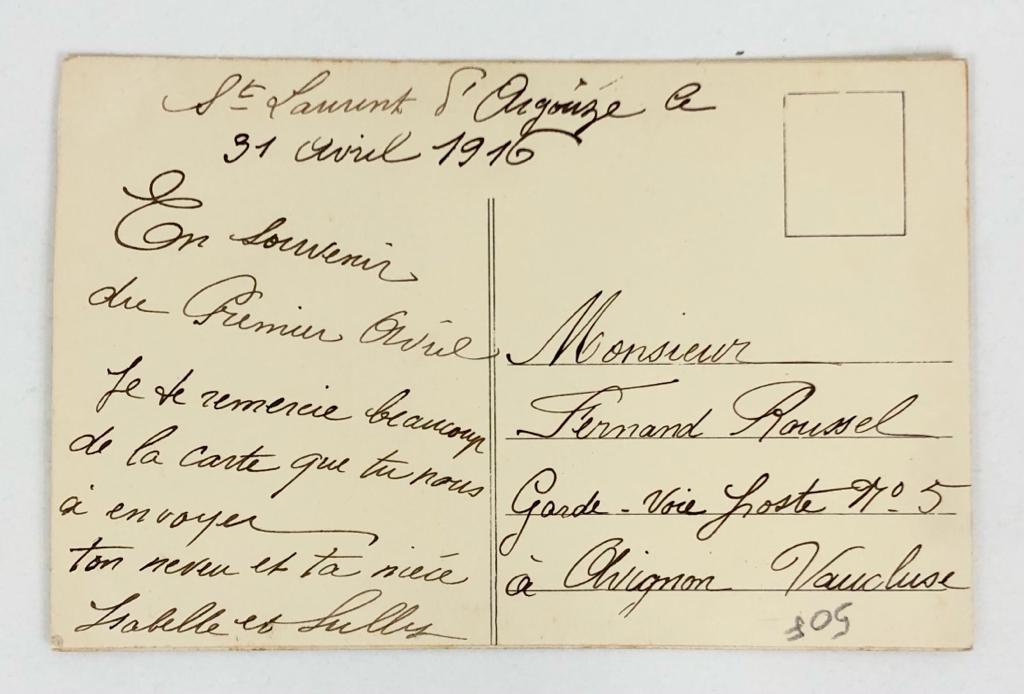 St Laurent d'Aigouze le
31 Avril 1916
En souvenir
du Premier Avril
Je te remercie beaucoup
de la carte que tu nous
à envoyer
ton neveu et ta nièce
Isabelle et Sully
Monsieur
Fernand Roussel
Garde-Voie Poste No. 5
à Avignon Vaucluse
805